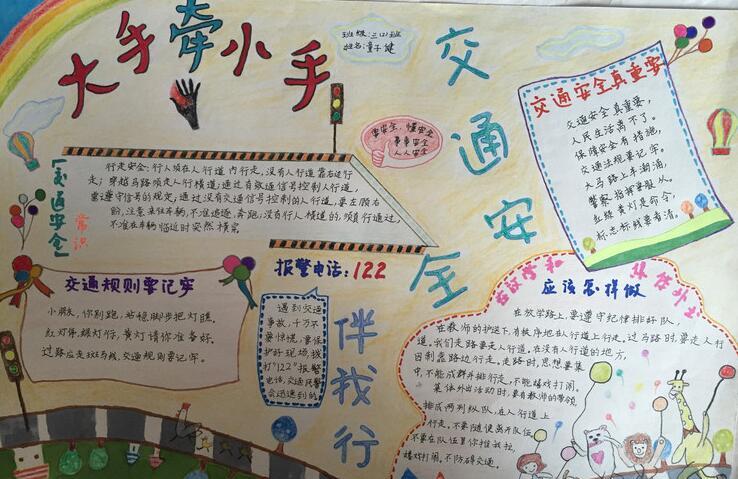 大手牵小手
班级:三(4)班
姓名:童子健
交通安全伴我行
要安全,懂安全
事事安全
人人安全
交通安全真重要
交通安全真重要,
人民生活离不了。
保障安全有措施,
交通法规要记牢。
大马路上车潮涌,
警察指挥要服从。
红绿黄灯是命令,
标志标线要看清。
【交通安全】
常识
行走安全:行人须在人行道内行走,没有人行道靠右边行
走;穿越马路须走人行横道;通过有交通信号控制人行道,
需遵守信号的规定;通过没有交通信号控制的人行道,要左顾右
盼,注意来往车辆,不准追逐、奔跑;没有人行横道的,须直行通过,
不准在车辆临近时突然横穿。
报警电话:122
交通规则要记牢
小朋友,你别跑,站稳脚步把灯瞧。
红灯停,绿灯行,黄灯请你准备好。
过路应走斑马线,交通规则要记牢。
遇到交通
事故,千万不
要惊慌,要保
护好现场,拨
打"122"报警
电话,交通民警
会迅速到的
在放学和集体外出
应该怎样做
在放学路上,要遵守纪律排好队,
在教师的护送下,有秩序地在人行道上行走。过马路时,要走人行
道。我们走路要走人行道。在没有人行道的地方,
因到靠路边行走。走路时,思想要集
中,不能成群并排行走,不能嬉戏打闹。
集体外出活动时,要有教师的带领,
排成两列纵队,在人行道上
行走,不要随便离开队伍,
不要在队伍里你推我拉,
嬉戏打闹,不防碍交通。